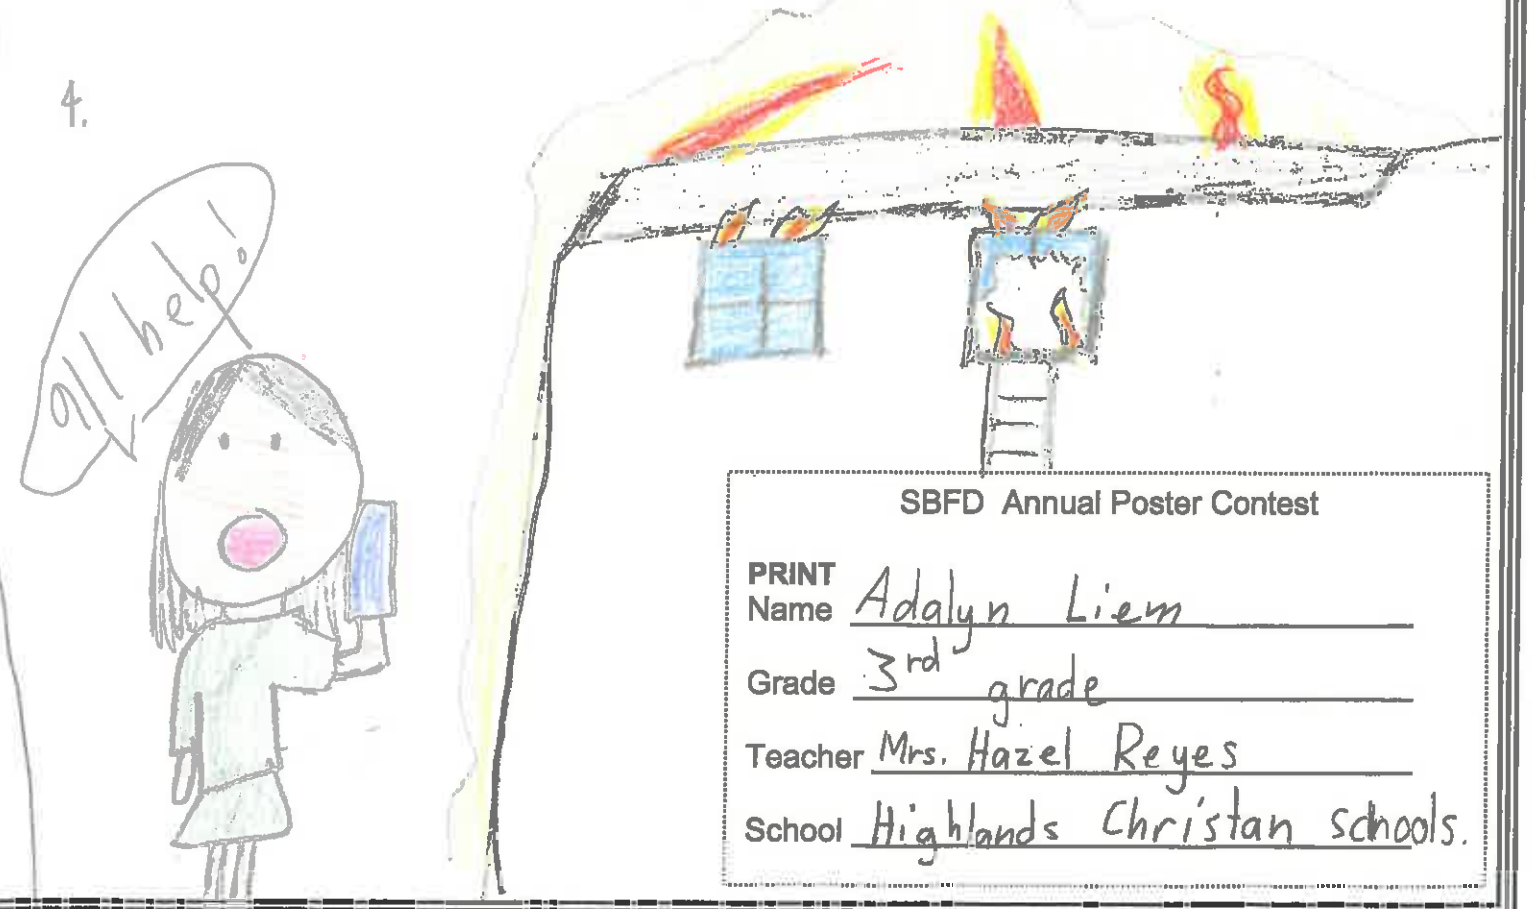 4.
I'll help!
SBFD Annual Poster Contest
PRINT
Name Adalyn Liem
Grade 3rd grade
Teacher Mrs. Hazel Reyes
School Highlands Christan schools.